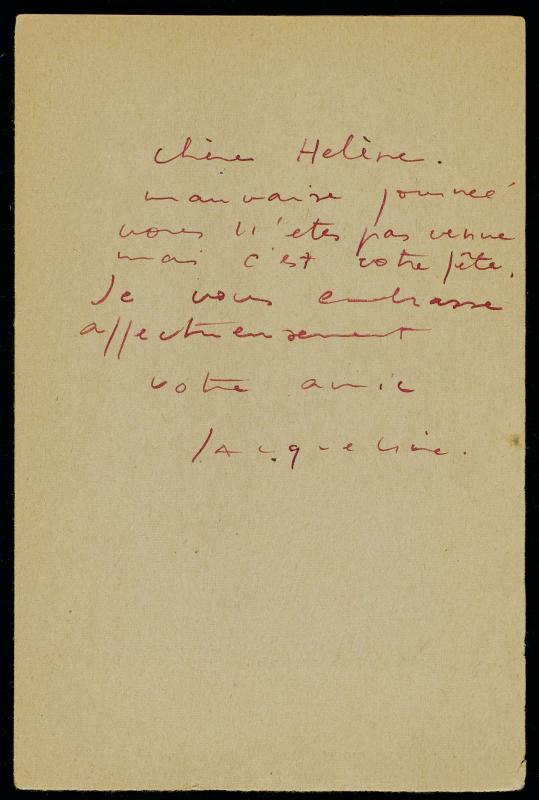 chère Helène.
mauvaise journeé
vous n'etes pas venue
mais c'est votre fête.
Je vous embrasse
affectueusement
votre amie
Jacqueline.